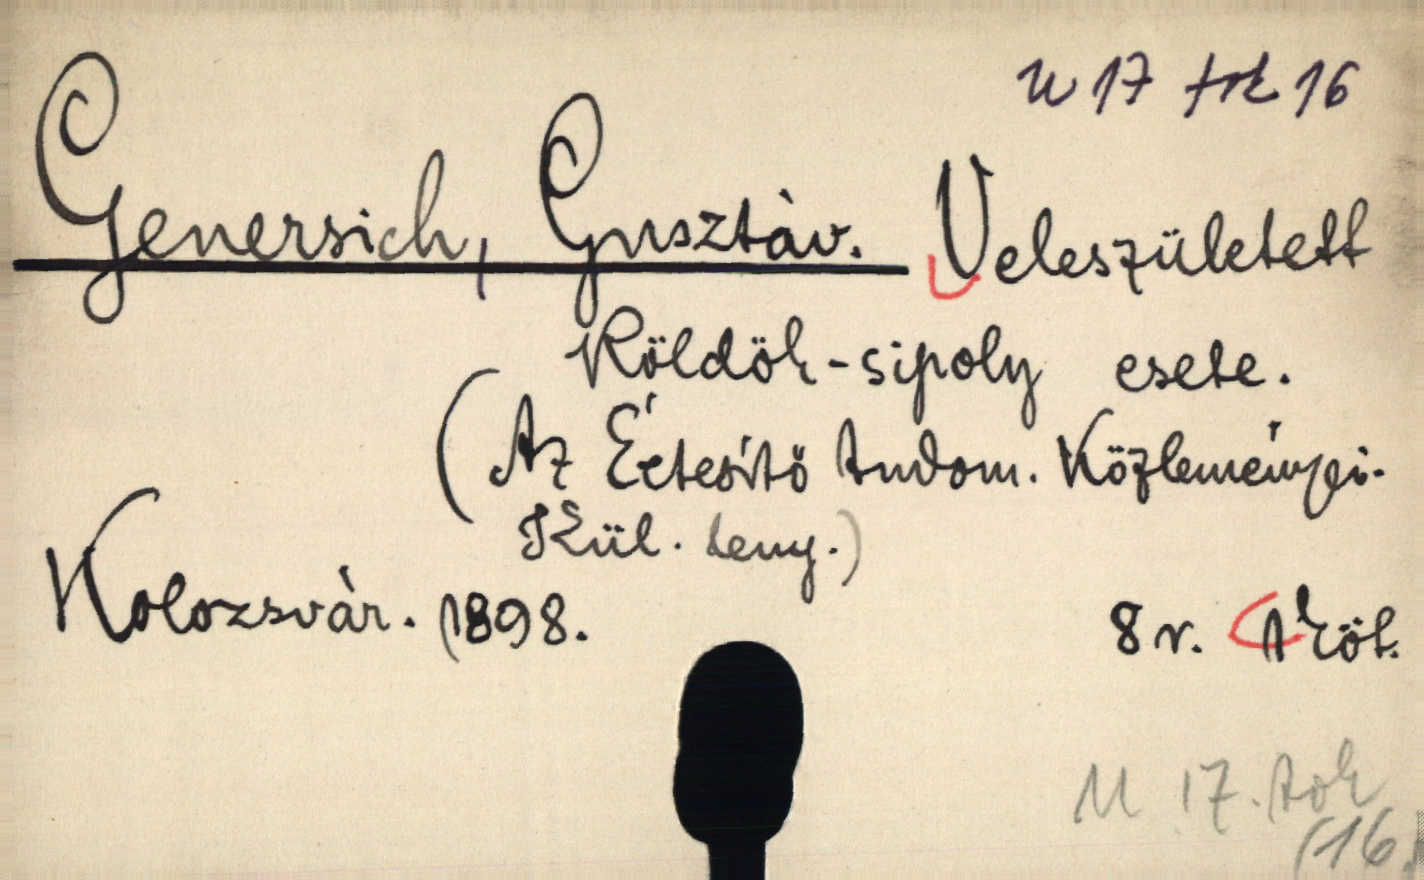 U 17 tok 16
Genersich, Gusztáv. Veleszületett
Köldök-sipoly esete.
(Az Értesítő tudom. Közleményei.
Kül. leny.)
Kolozsvár. 1898. 8 r. 1 köt.
U 17. tok
(16.